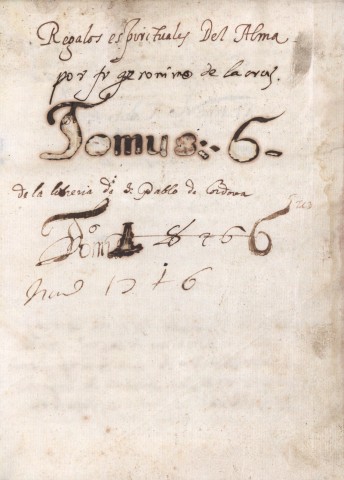 Regalos espirituales Del Alma
por fr geronimo de la cruz.
Tomus:. 6.
de la libreria de S. Pablo de Cordova
Tomo 6